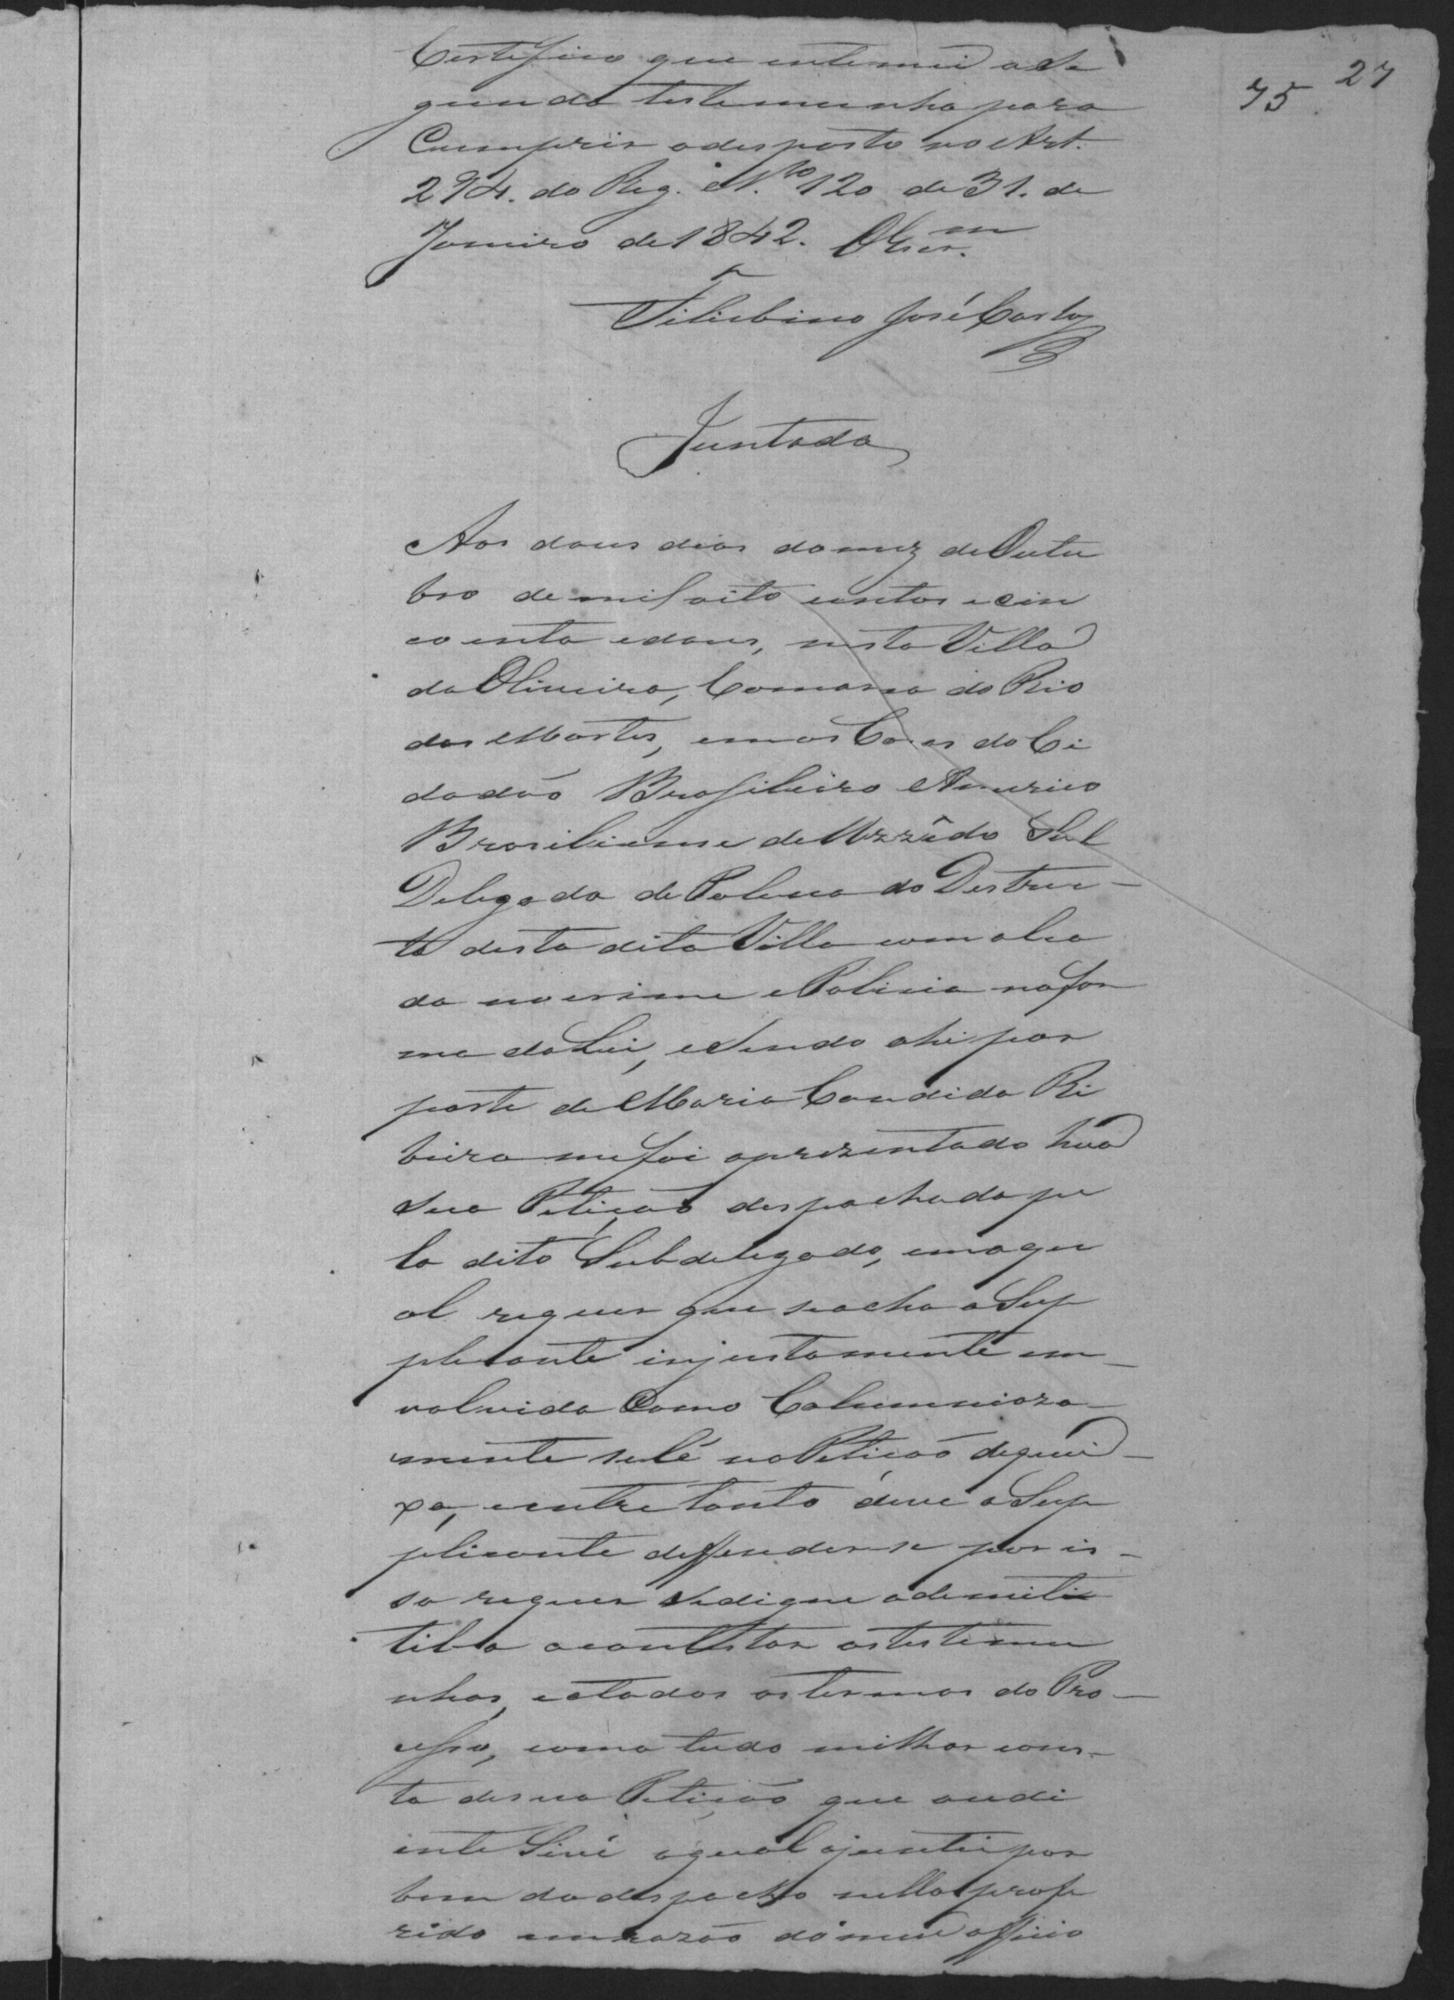 27
75
Certifico que intemei a Se
gunda testemunha para
Cumprir o desposto no Art.
294. do Reg. N.º 120 de 31. de
Janeiro de 1842. O Escr.m
Felisbino José Carlos
Juntada
Aos dous dias do mez de Outu
bro de mil oito centos e cin
coenta e dous, nesta Villa
da Oliveira, Comarca do Rio
das Mortes, em as Cazas do Ci
dadão Brasileiro Americo
Brasiliense de Sub
Delegado de Polica do Destric-
to desta dita Villa com alsa
da no crime e Policia na for
ma da Lei, e Sendo ahi por
parte de Maria Candida Ri
beira me foi aprezentado hua
Sua Petição despachada pe
lo dito Subdelegado, em a qu
al requer que se acha a Sup
plicante injustamente em-
volvida Como Calumnioza-
mente se lê na Petição de quei-
xa, e entre tanto deve a Sup
plicante deffender-se por is-
so requer Se digne admiti
til-a a contestar as testemu
nhas, e a todos os termos do Pro-
cesso, como tudo milhor cons-
ta de sua Petição que audi
ente Sevê a qual ajuntei por
bem do despacho nella profe
rido em razão do meu officio